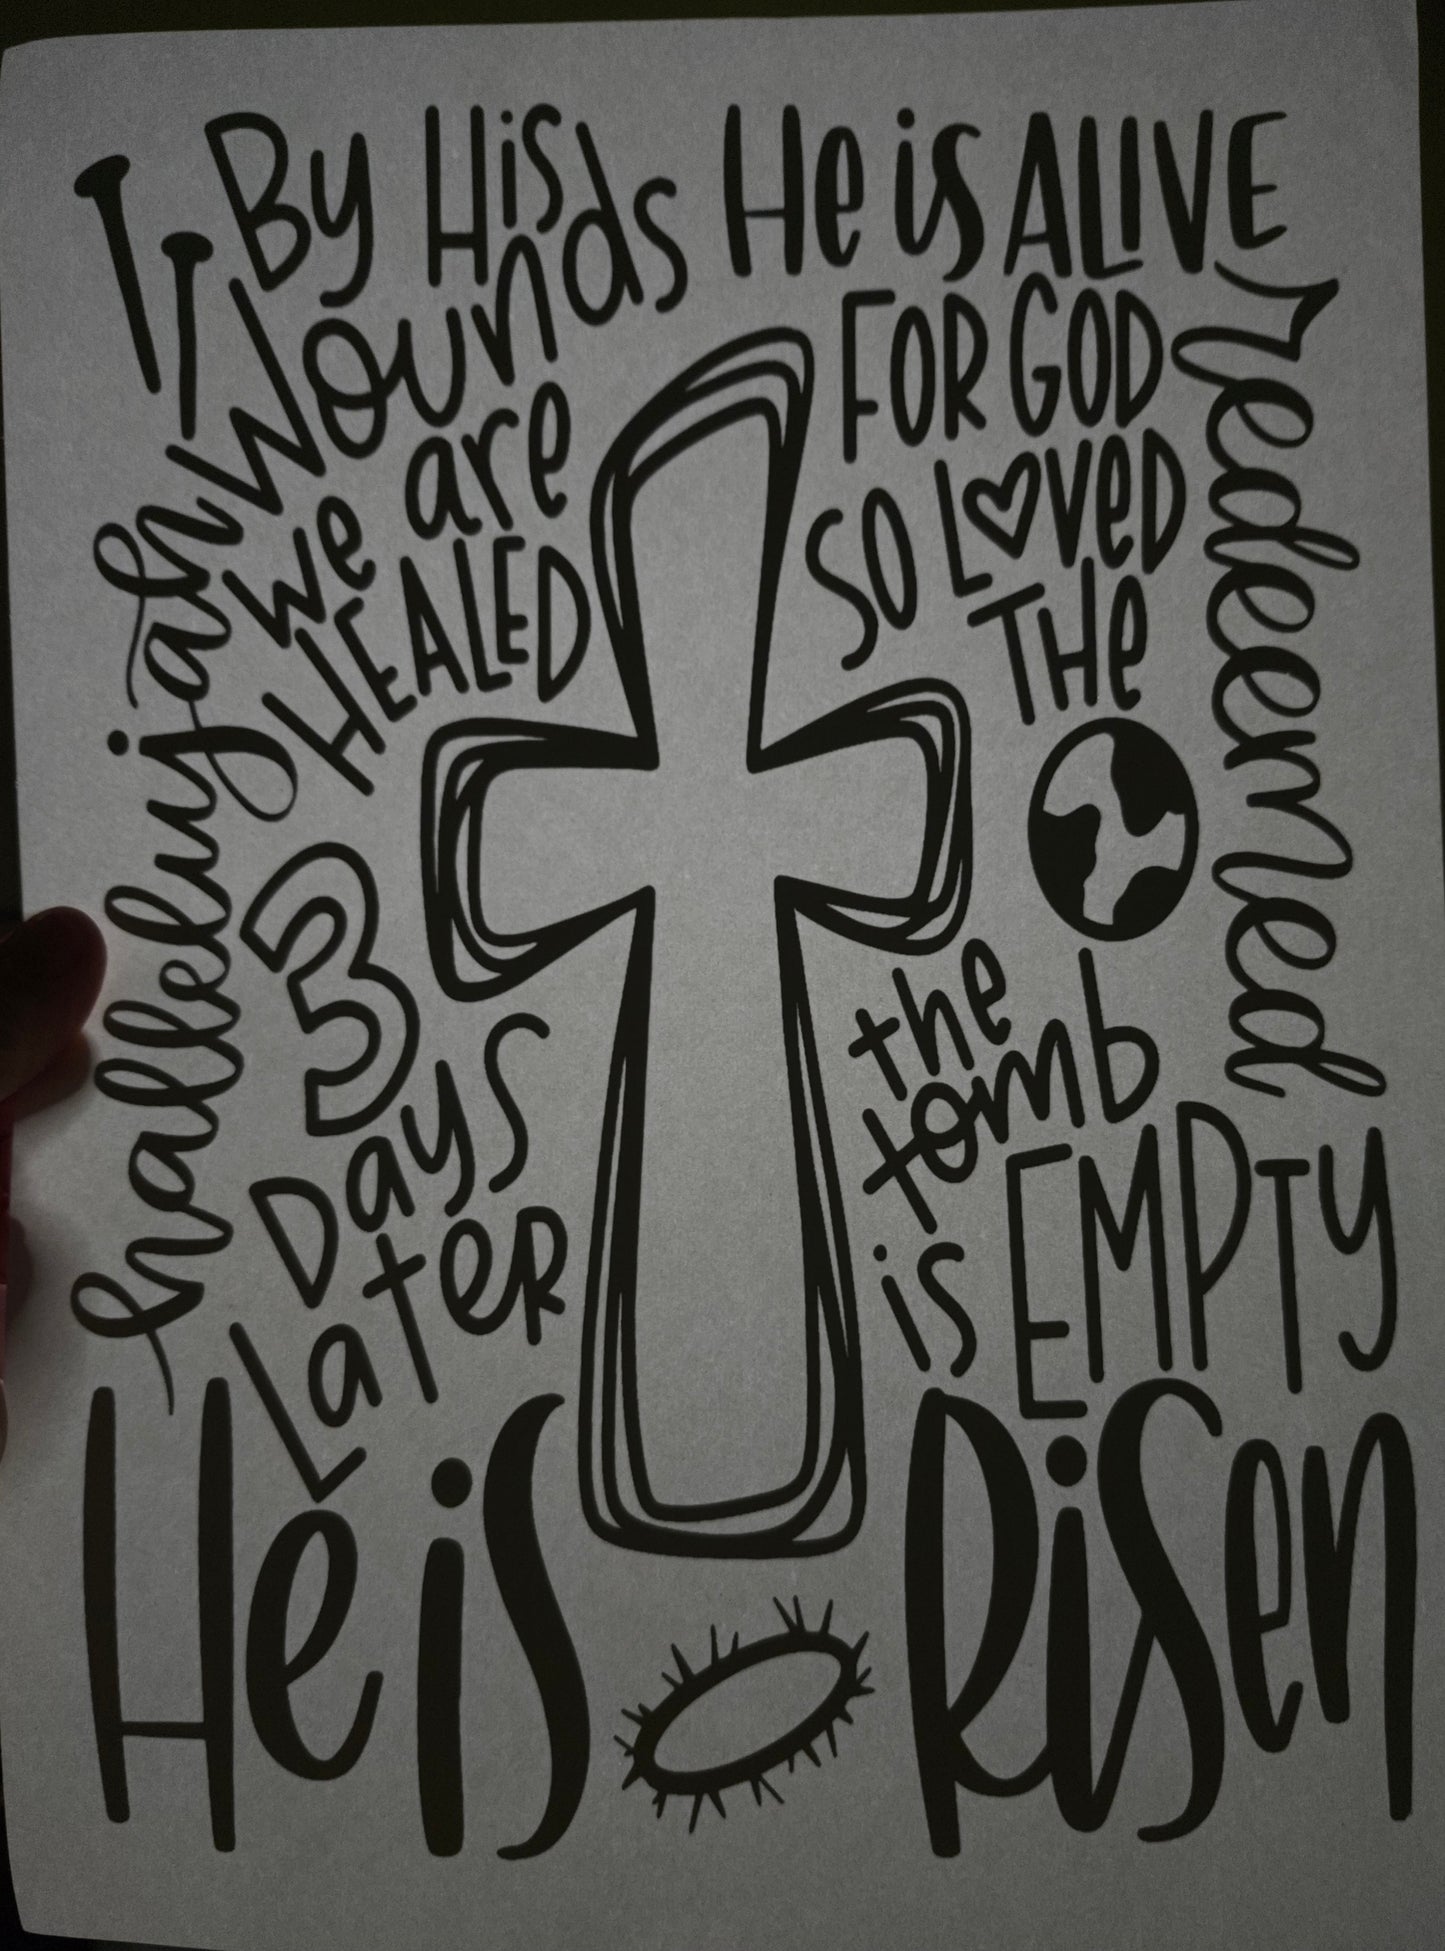 By His
Wounds
we are
HEALED
hallelujah
3
Days
Later
He is ALIVE
FOR GOD
SO LOVED
THe
redeemed
the
tomb
is EMPTY
He is Risen